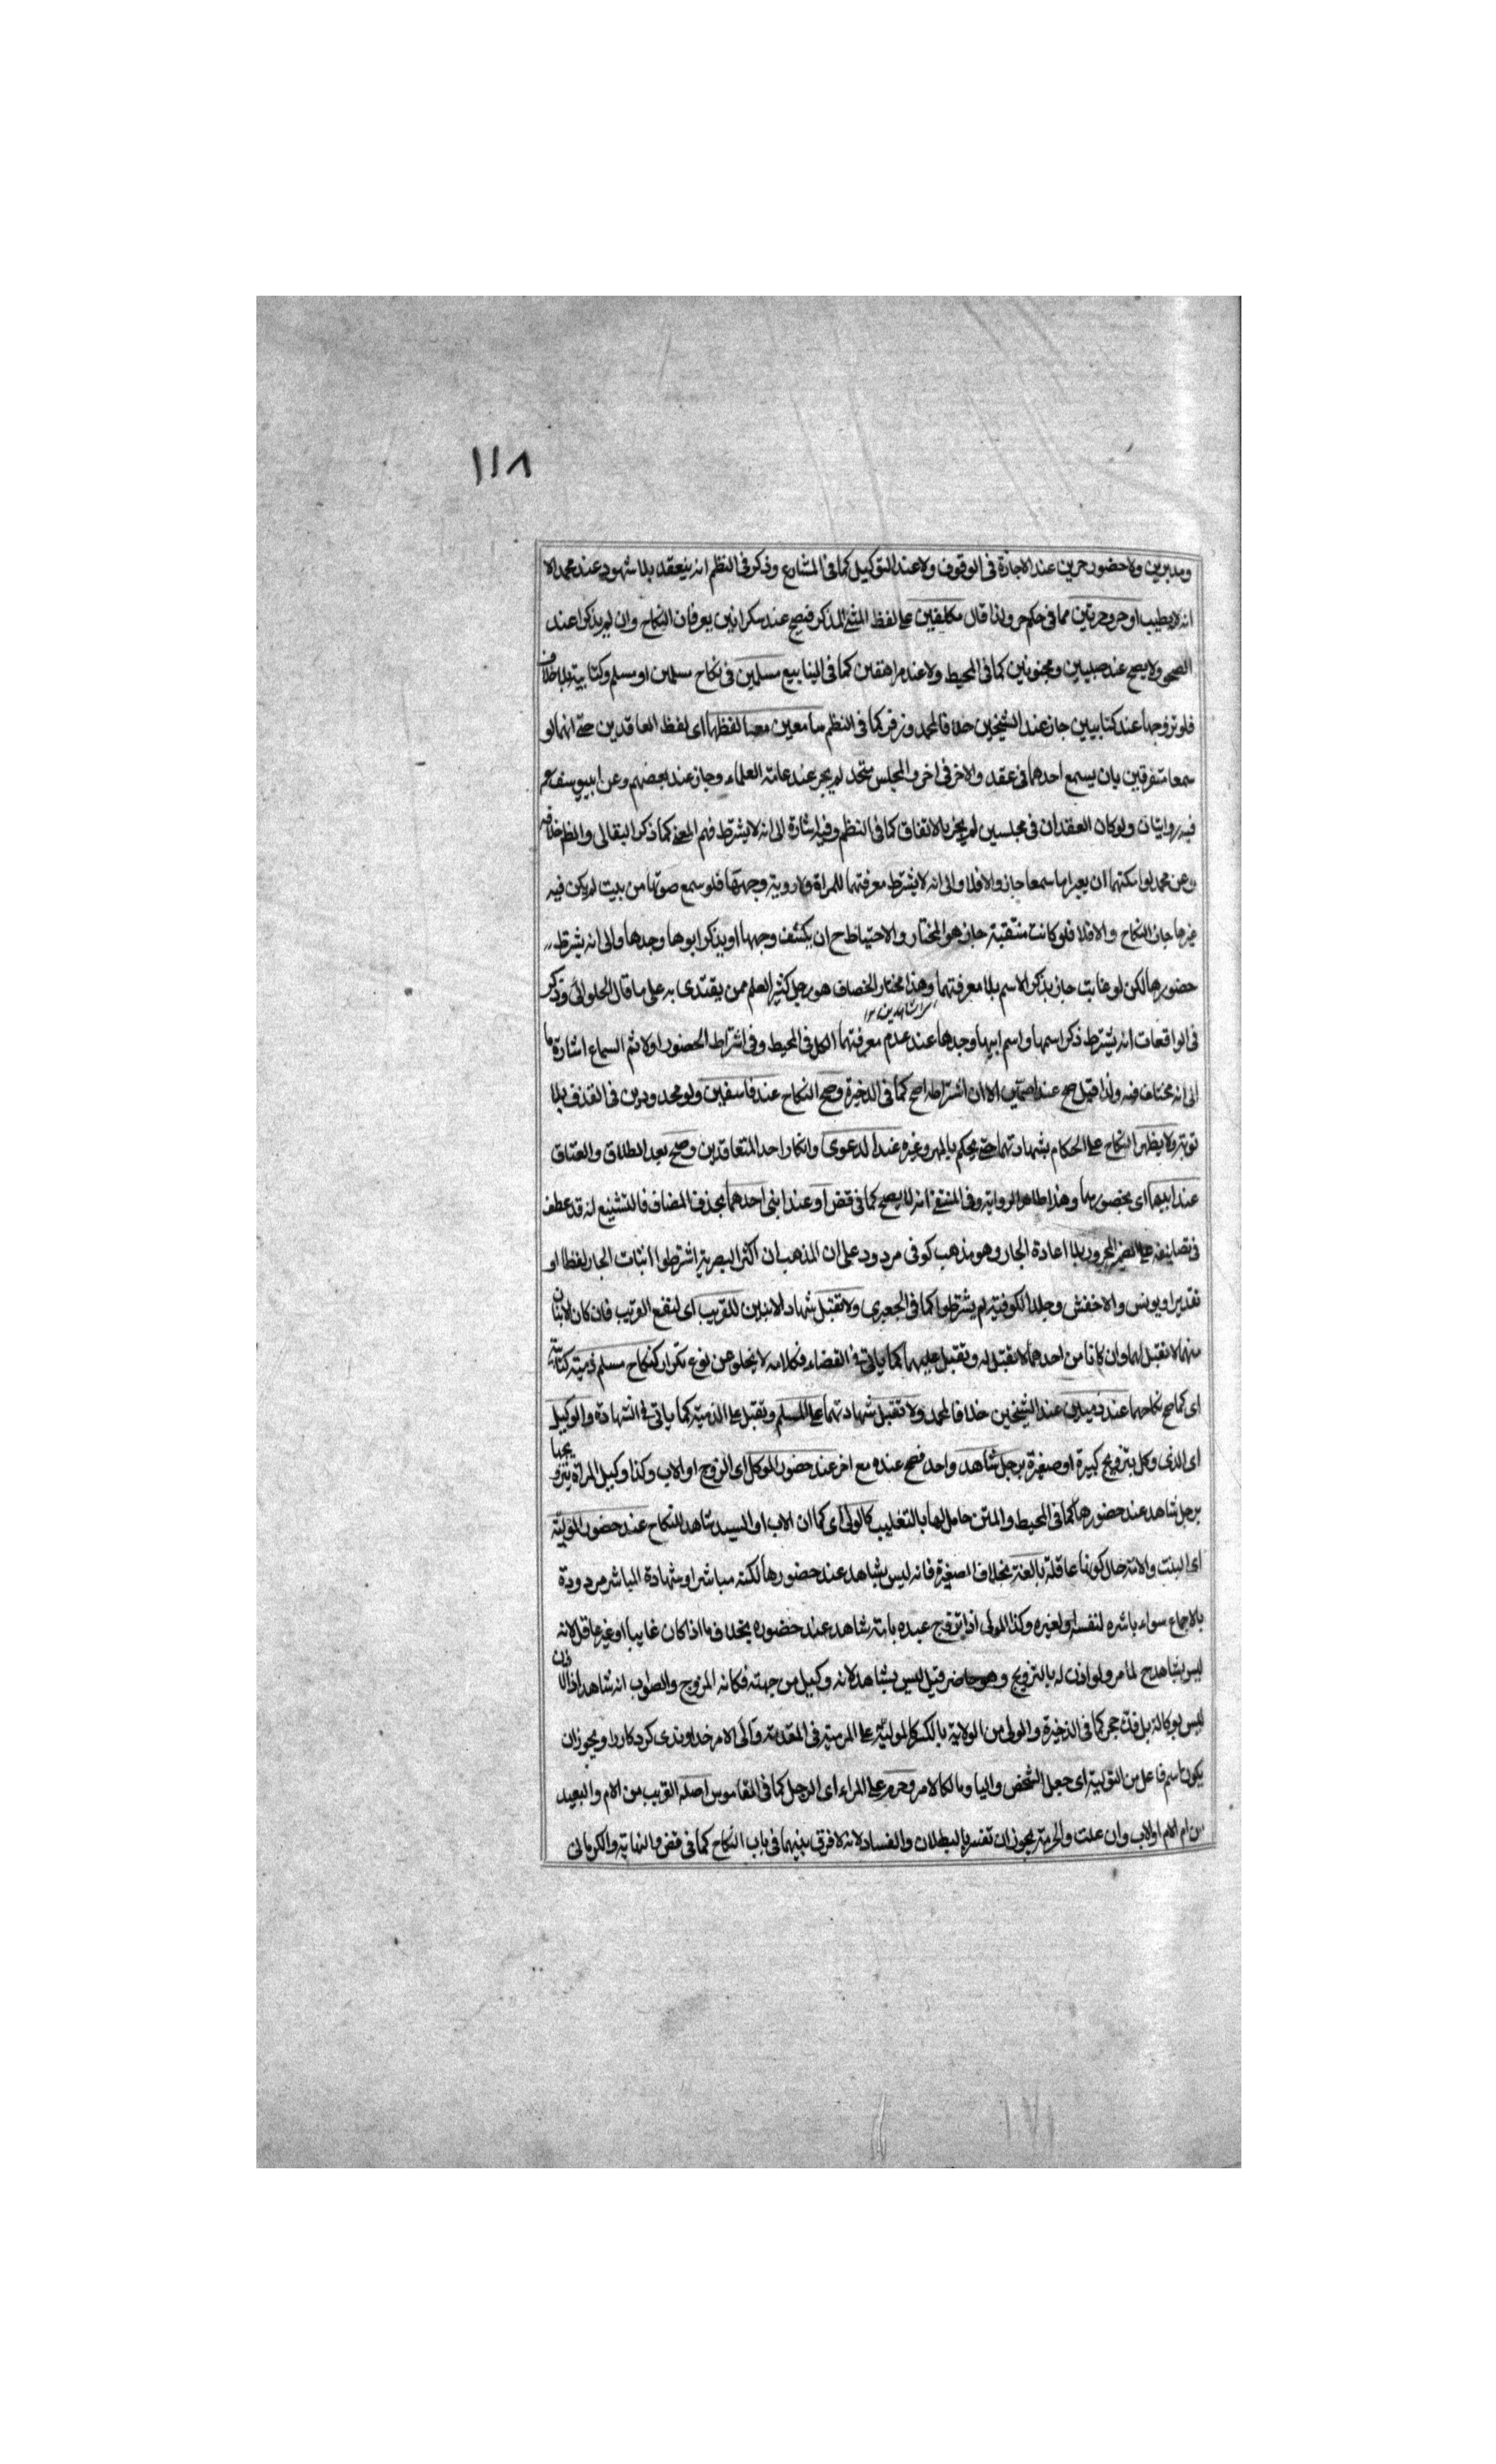 ١١٨
ومدبرين ولا حضور حرين عند الاجازة فى الوقوف ولا عند التوكيل كما فى المشارع وذكر فى النظم انه ينعقد بلا شهود عند محمد الا
انه لا يطيب او حر وحرتين مما فى حكم حر ولذا قال مكلفين على لفظ المثنى المذكر فيصح عند سكرانين يعرفان النكاح وان لم يذكرا عند
الصحو ولا يصح عند صبيين ومجنونين كما فى المحيط ولا عند مراهقين كما فى الينابيع مسلمين فى نكاح مسلمين او مسلم وكتابية بلا خلاف
فلو تزوجها عند كتابيين جاز عند الشيخين خلافا لمحمد وزفر كما فى النظم سامعين معا لفظهما اى لفظ العاقدين حتى انهما لو
سمعا متفرقين بان يسمع احدهما فى عقد والاخر فى اخر والمجلس متحد لم يجز عند عامة العلماء وجاز عند بعضهم وعن ابي يوسف
فيه روايتان ولو كان العقدان فى مجلسين لم يجز بالاتفاق كما فى النظم وفيه اشارة الى انه لا يشترط فهم المعنى كما ذكر البقالى والظ خلافه
وعن محمد لو امكنهما ان يعبرا ما سمعا جاز والا فلا والى انه لا يشترط معرفتهما للمراة ولا روية وجهها فلو سمع صوتها من بيت لم يكن فيه
غيرها جاز النكاح والا فلا فلو كانت متنقبة جاز هو المختار والاحتياط ح ان يكشف وجهها او يذكر ابوها وجدها والى انه يشترط
حضورها لكن لو غابت جاز بذكر الاسم بلا معرفتهما وهذا مختار الخصاف هو رجل كثير العلم ممن يقتدى به على ما قال الحلوائى وذكر
فى الواقعات انه يشترط ذكر اسمها واسم ابيها وجدها عند عدم معرفتهما الكل فى المحيط وفى اشتراط الحضور اولا ثم السماع اشارة ما
الى انه مختلف فيه ولذا قيل صح عند اصمين الا ان اشتراطه اصح كما فى الذخيرة وصح النكاح عند فاسقين ولو محدودين فى القذف بلا
توبة ولا يظهر النكاح على الحكام بشهادتهما حتى يحكم بالمهر وغيره عند الدعوى وانكار احد المتعاقدين وصح بعد الطلاق والعتاق
عند ابنيهما اى بحضورهما وهذا ظاهر الرواية وفى المنتقى انه لا يصح كما فى قض او عند ابنى احدهما بحذف المضاف فالتشنيع انه قد عطف
فى تصانيفه على الضمير المجرور بلا اعادة الجار وهو مذهب كوفى مردود على ان المذهب ان اكثر البصرية اشترطوا اثبات الجار لفظا او
تقديرا ويونس والاخفش وجل الكوفية لم يشترطوا كما فى الجعبرى ولا تقبل شهاد الابنين للقريب اى لنفع القريب فان كان الابنان
منهما لا تقبل لهما وان كانا من احدهما لا تقبل له وتقبل عليهما كما ياتى فى القضاء فكلامه لا يخلو عن نوع تكرار كنكاح مسلم ذمية كتابية
اى كما صح نكاحهما عند ذميين عند الشيخين خلافا لمحمد ولا تقبل شهادتهما على المسلم وتقبل على الذمية كما ياتى فى الشهادة والوكيل
اى الذى وكل بتزويج كبيرة او صغيرة برجل شاهد واحد فصح عنده مع اخر عند حضور الموكل اى الزوج او الاب وكذا وكيل المراة بتزويجها
برجل شاهد عند حضورها كما فى المحيط والمتن حامل لهما بالتغليب كالولى اى كما ان الاب او السيد شاهد للنكاح عند حضور المولية
اى البنت والامة حال كونها عاقلة بالغة بخلاف الصغيرة فانه ليس بشاهد عند حضورها لكنه مباشرا وشهادة المباشر مردودة
بالاجماع سواء باشره لنفسه او لغيره وكذا المولى اذا تزوج عبده بامته شاهد عند حضوره بخلاف ما اذا كان غايبا او غير عاقل لانه
ليس بشاهد ح لما مر ولو اذن له بالتزويج وهو حاضر قيل ليس بشاهد لانه وكيل من جهته فكانه المزوج والصواب انه شاهد اذ الاذن
ليس بوكالة بل فك حجر كما فى الذخيرة والولى من الولاية بالكسر كالمولية على المرمية فى المقدمة والى الامر خداوندى كرد كار را ويجوز ان
يكون اسم فاعل من التولية اى جعل الشخص واليا ومالكا لامر وحرم على المراء اى الرجل كما فى القاموس اصله القريب من الام والبعيد
من ام الام او الاب وان علت والحرمة يجوز ان تفسر بالبطلان والفساد لانه لا فرق بينهما فى باب النكاح كما فى قض والنهاية والكرمانى